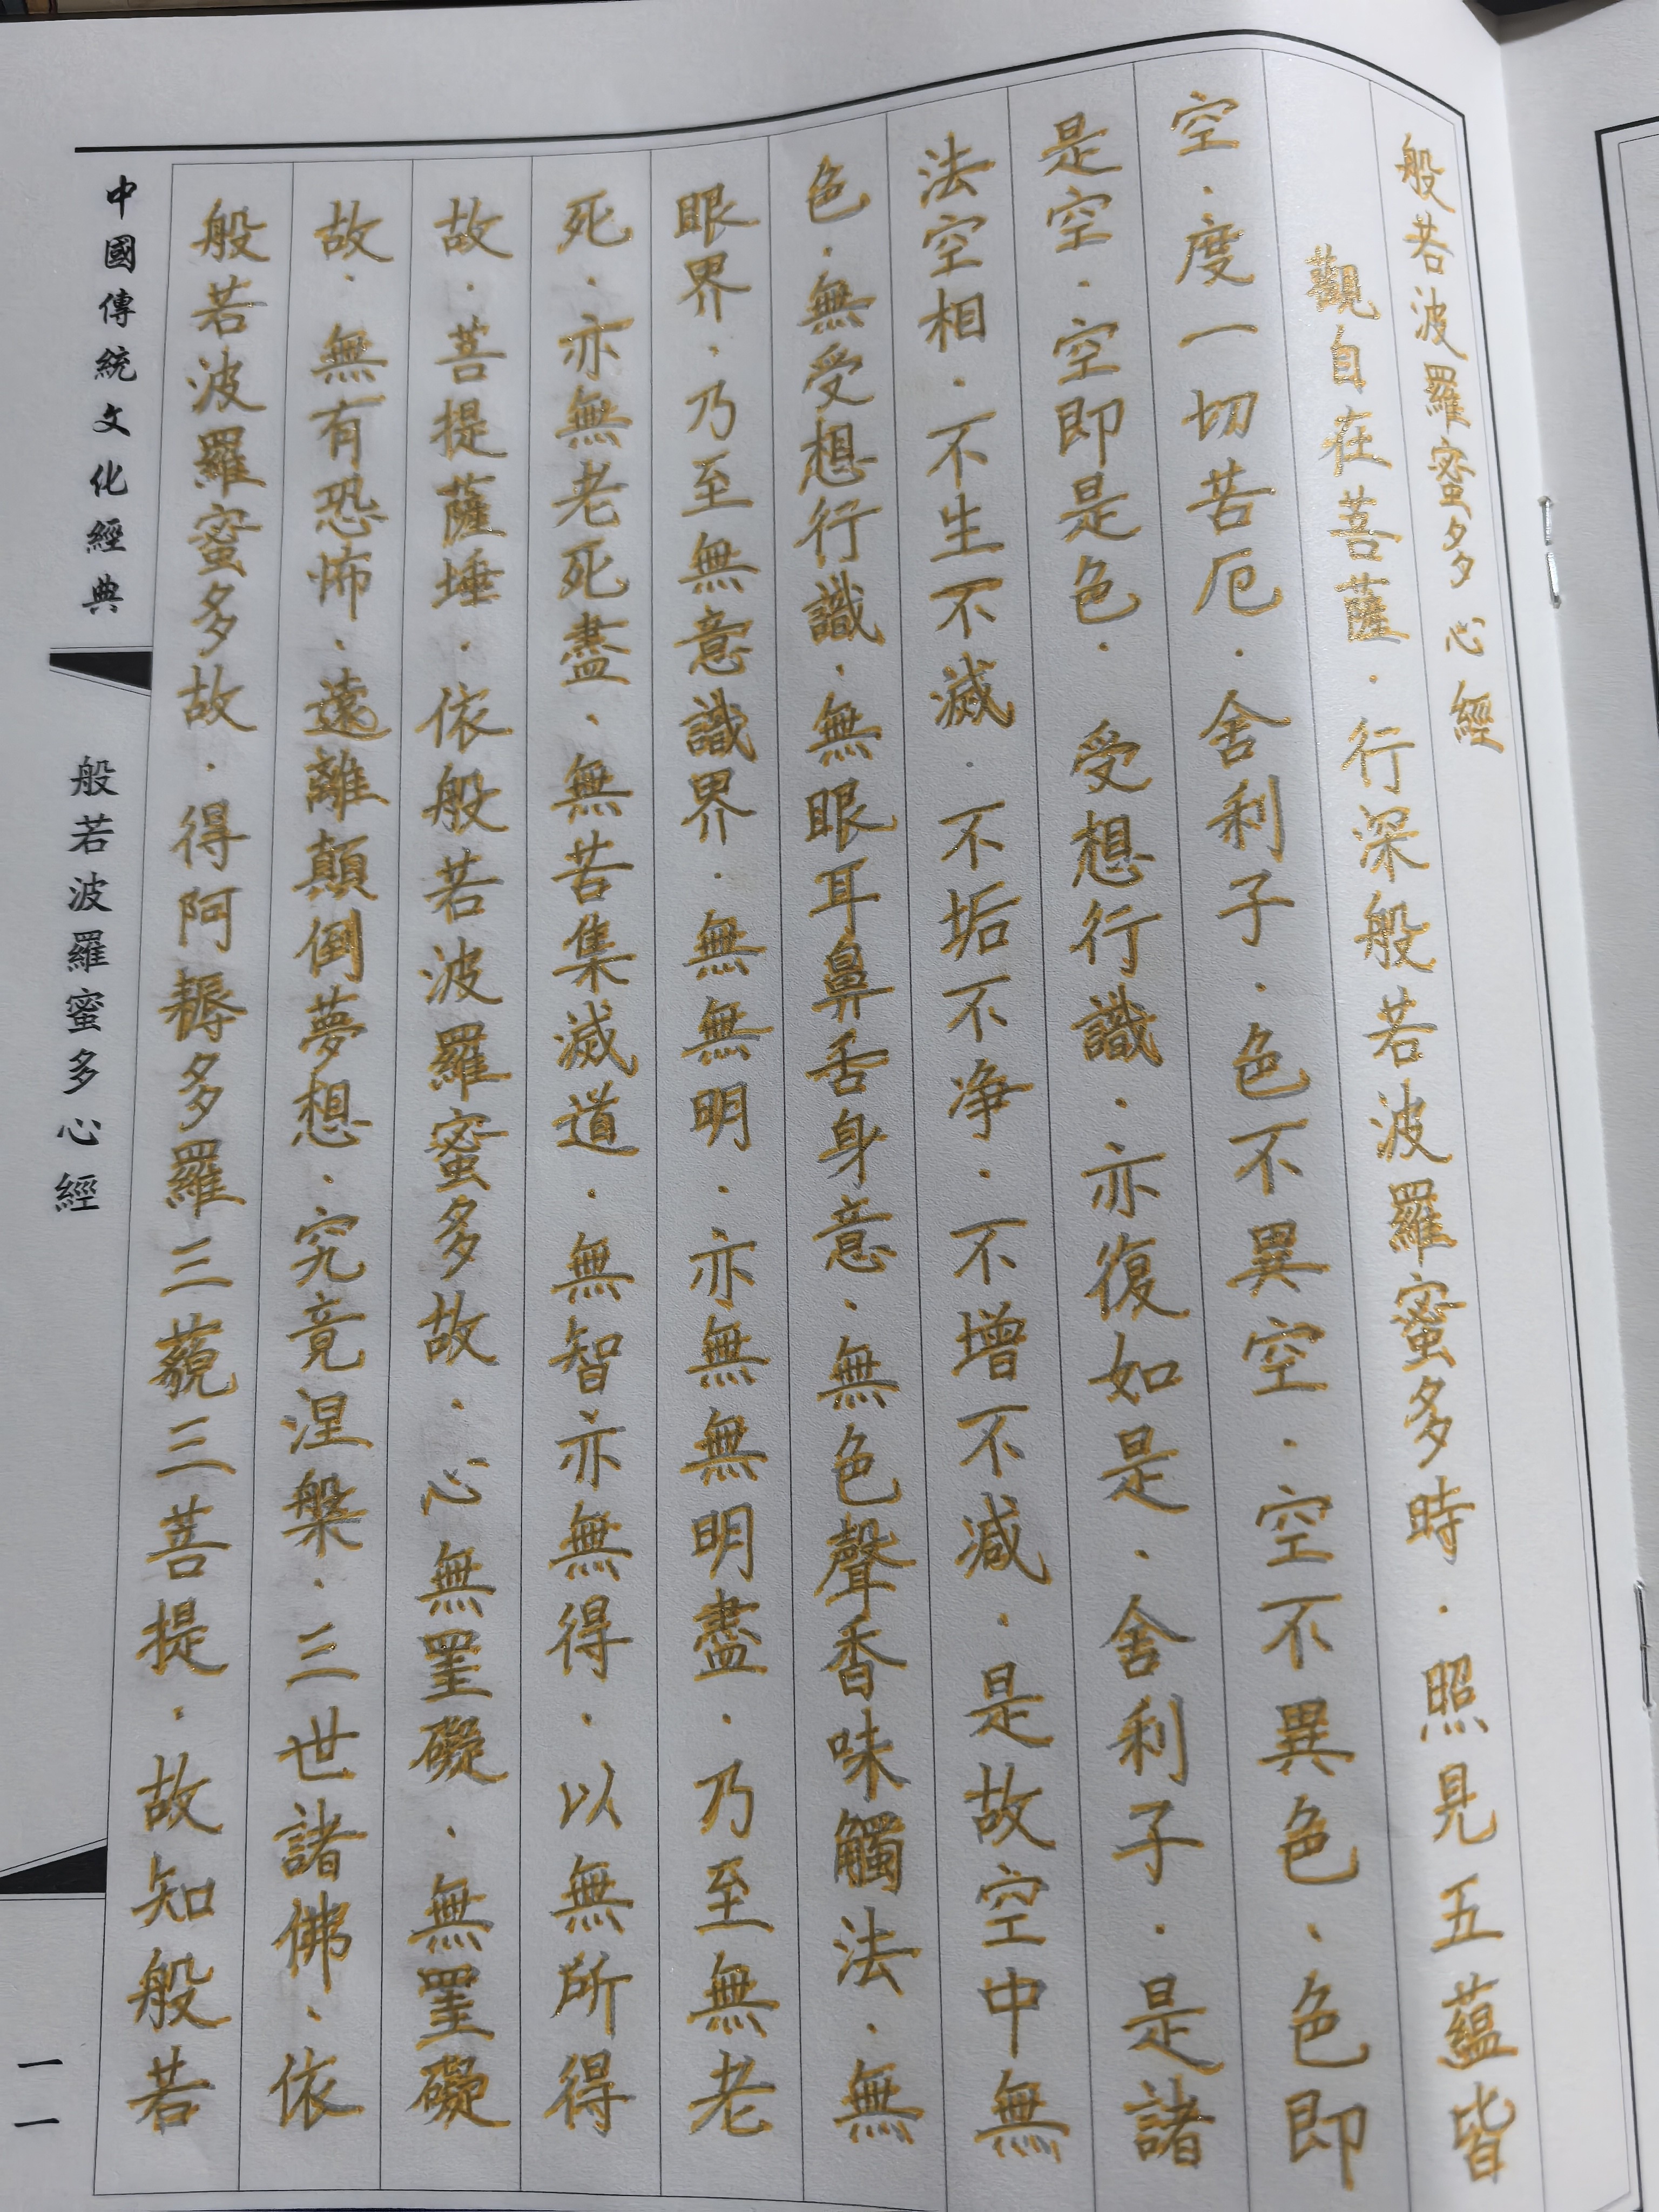 般若波羅蜜多心經
觀自在菩薩．行深般若波羅蜜多時．照見五蘊皆
空．度一切苦厄．舍利子．色不異空．空不異色、色即
是空．空即是色．受想行識．亦復如是．舍利子．是諸
法空相．不生不滅．不垢不净．不增不减．是故空中無
色．無受想行識．無眼耳鼻舌身意．無色聲香味觸法．無
眼界．乃至無意識界．無無明．亦無無明盡．乃至無老
死．亦無老死盡．無苦集滅道．無智亦無得．以無所得
故．菩提薩埵．依般若波羅蜜多故．心無罣礙．無罣礙
故．無有恐怖．遠離顛倒夢想．究竟涅槃．三世諸佛．依
般若波羅蜜多故．得阿耨多羅三藐三菩提．故知般若
中國傳統文化經典
般若波羅蜜多心經
一一